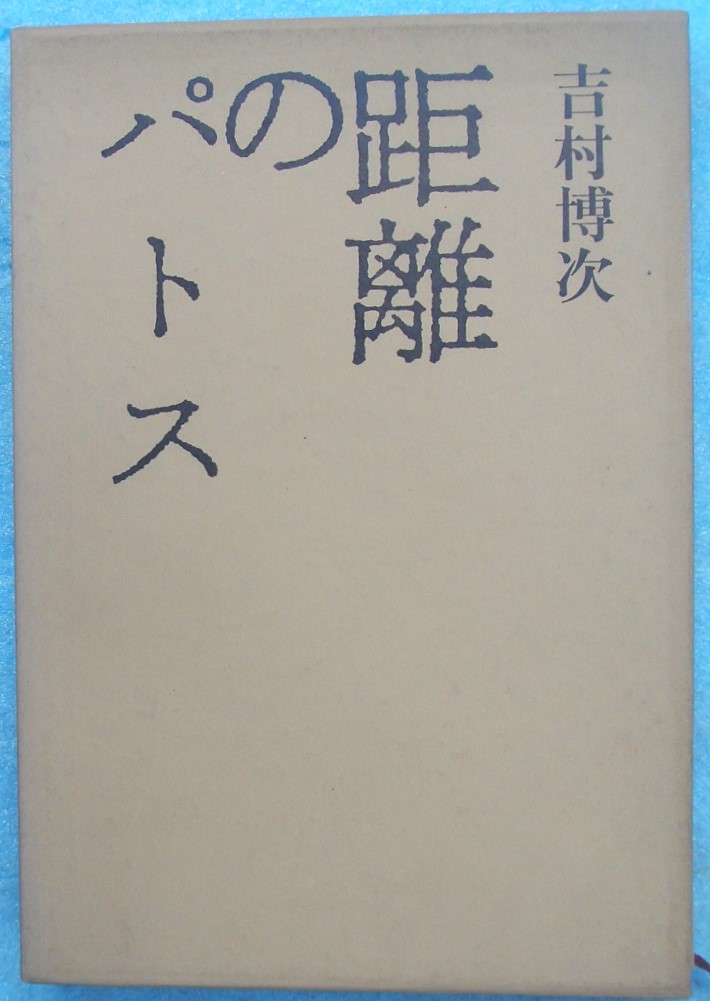 吉村博次
距離
の
パトス